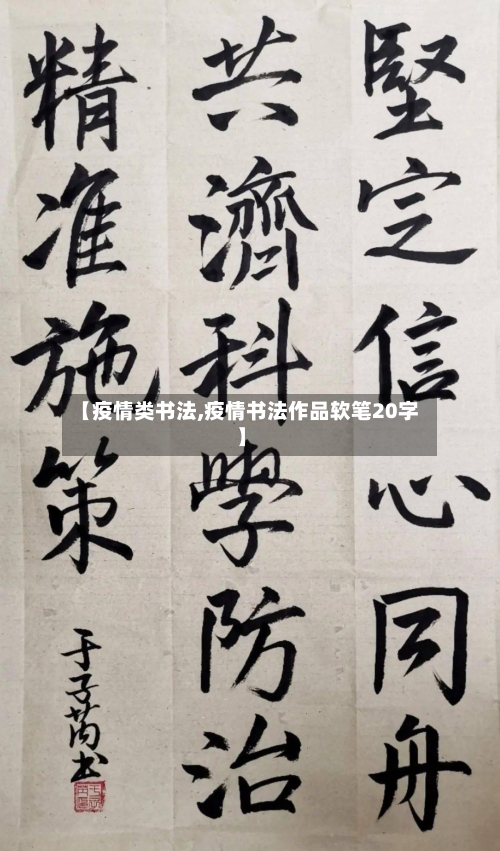 堅定信心同舟
共濟科學防治
精准施策
于子芮书
【疫情类书法,疫情书法作品软笔20字
】